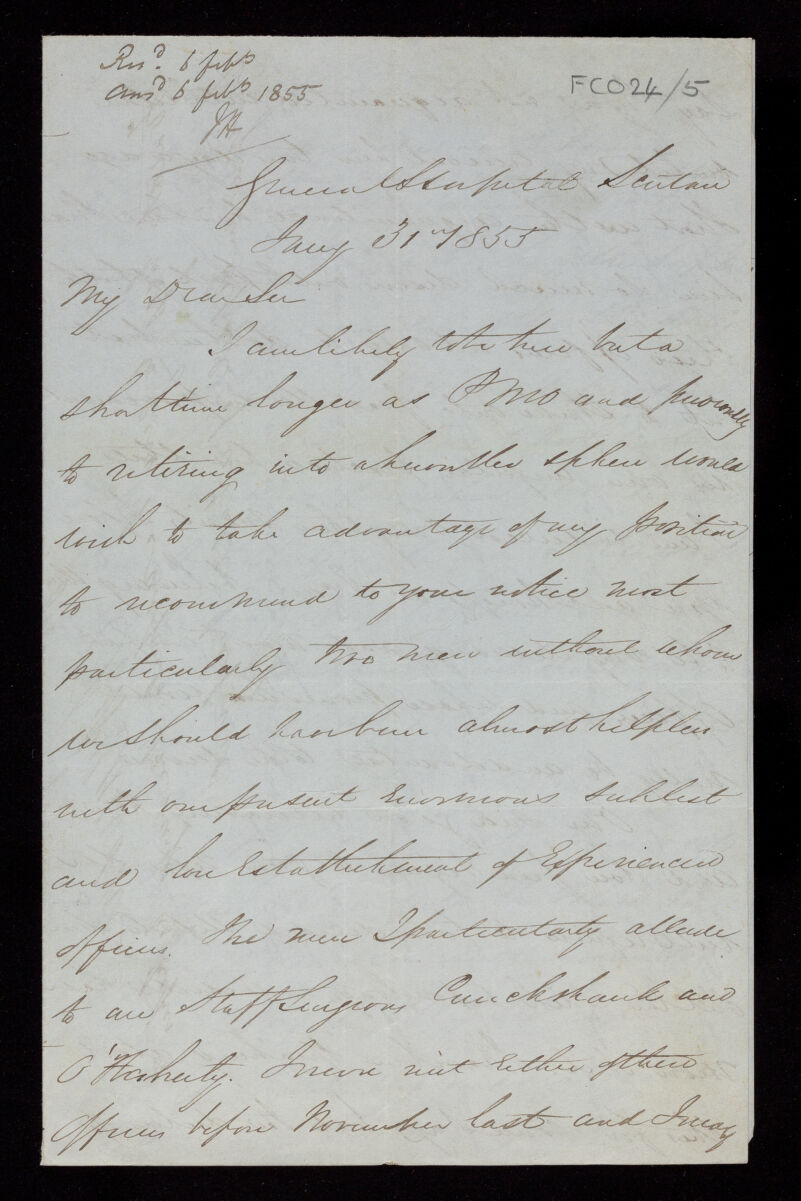 Recd. 6 feby
Ansd 6 feby 1855
JH
FCO24/5
General Hospital Scutari
Jany 31st 1855
My Dear Sir
I am likely to be here but a
short time longer as PMO and previously
to retiring into a humbler sphere would
wish to take advantage of my position
to recommend to your notice most
particularly two men without whom
we should have been almost helpless
with our present enormous sick list
and low Establishment of Experienced
officers. The men I particularly allude
to are Staff Surgeons Cruickshank and
O'Flaherty. I never met either of these
officers before November last and I may